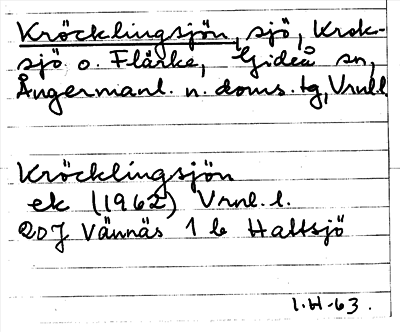 Kröcklingsjön, sjö, Krok-
sjö o. Flärke, Gideå sn,
Ångermanl. n. doms. tg, Vrnll
Kröcklingsjön
ek (1962) Vrnl. l.
20J Vännäs 1 b Hattsjö
1.H-63.